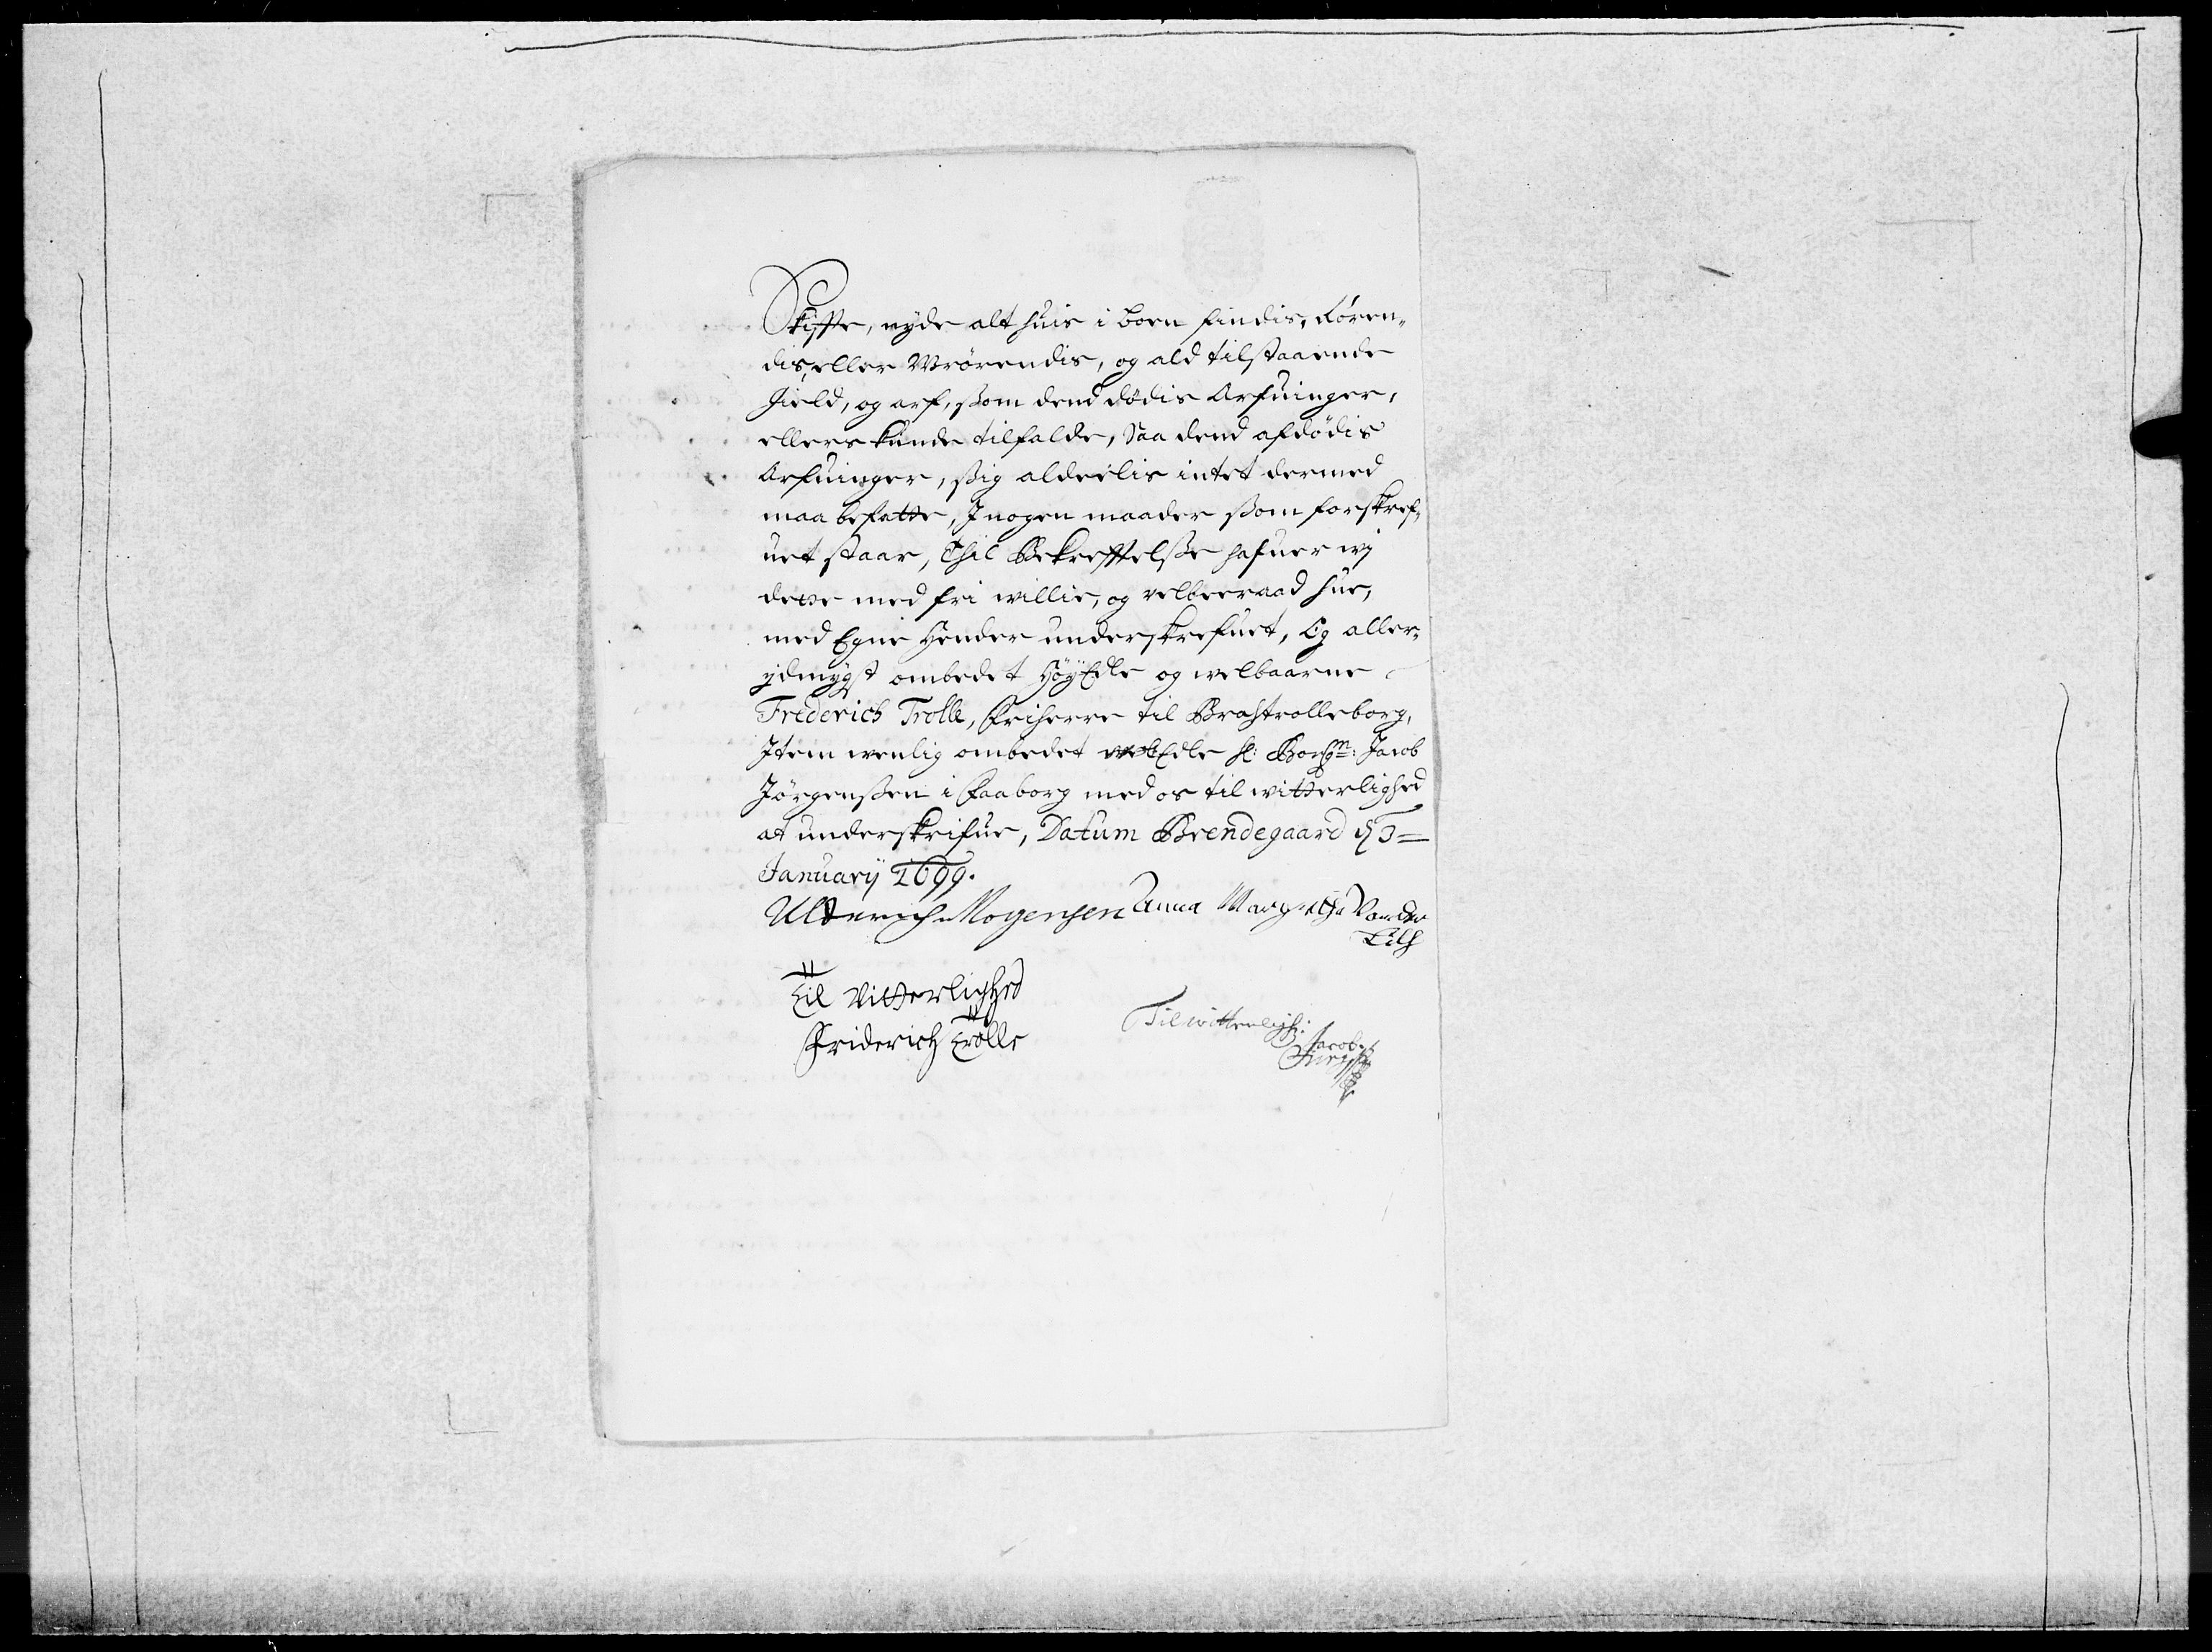 Skiffte, nyde alt huis i boen findis, Røren¬
dis, eller Wrørendis, og ald tilstaaende
Jield, og arf, ssom dend dødis Arfuinger,
ellers kunde tilfalde, Saa dend afdødis
Arfuinger, ssig aldeelis intet dermed
maa befatte, J nogen maader ssom forskref¬
uet staar, Thil Bekrefftelsse hafuer wj
dette med fri willie, og velberaad hue,
med Egne Hender underskrefuet, Og aller¬
ydmygst ombedet HøyEdle og welbaarne
Frederich Trolle, Friherre til Brahtrolleborg,
Jtem wenlig ombedet welEdle Hr: Borgm: Jacob
Jørgenssen i Faaborg med os til witterlighed
at underskrifue, Datum Brendegaard d 3=
January 1699.
Ulderich Mogensen Anna Margretha Vonder
Lilh
Til Vitterlighed
Friderich Trolle
Til witterligh:
Jacob